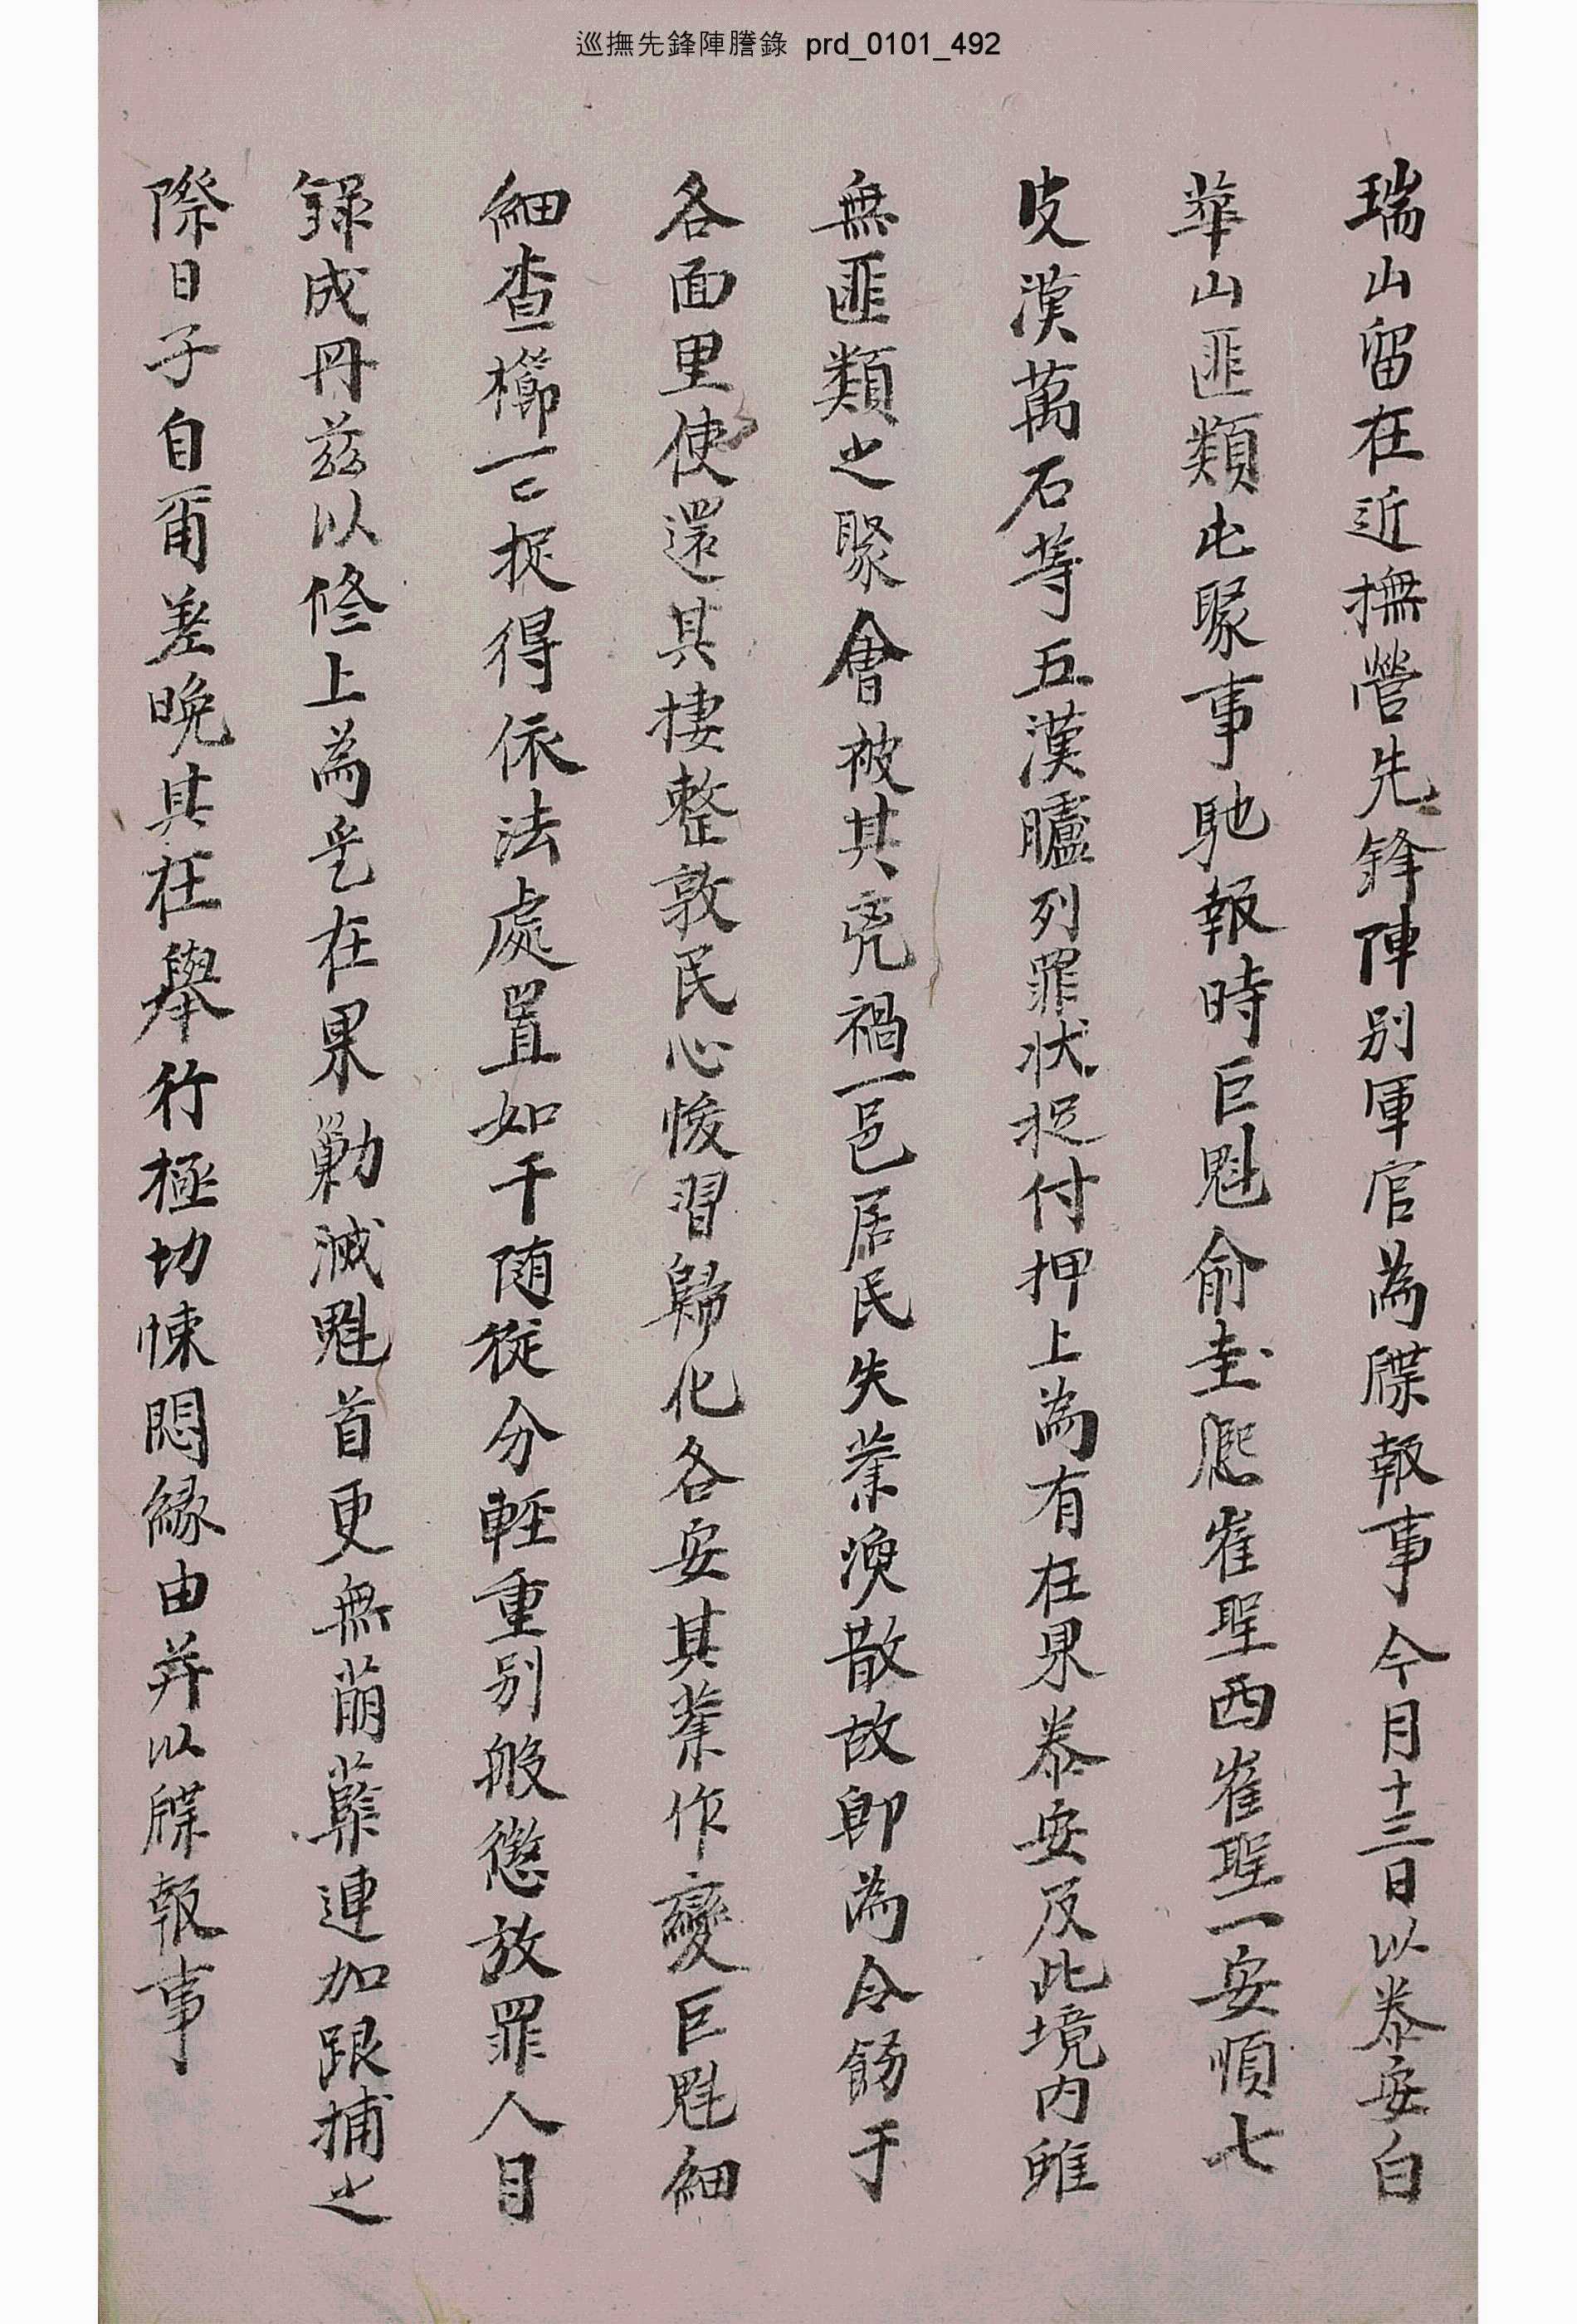 巡撫先鋒陣謄錄 prd_0101_492
瑞山留在近撫營先鋒陣别軍官為牒報事今月十三日以泰安白
華山匪類屯聚事馳報時巨魁俞圭凞崔聖西崔聖一安順七
皮漢萬石等五漢臚列罪状捉付押上為有在果泰安及此境內雖
無匪類之聚會被其凶禍一邑居民失業渙散故卽為令飭于
各面里使還其捿整敦民心悛習歸化各安其業作變巨魁細
細查櫛一一捉得依法處置如干随從分輕重别般懲放罪人目
録成冊兹以修上為乎在果勦滅魁首更無萠蘖連加跟捕之
際日子自爾差晚其在舉行極切悚悶緣由并以牒報事